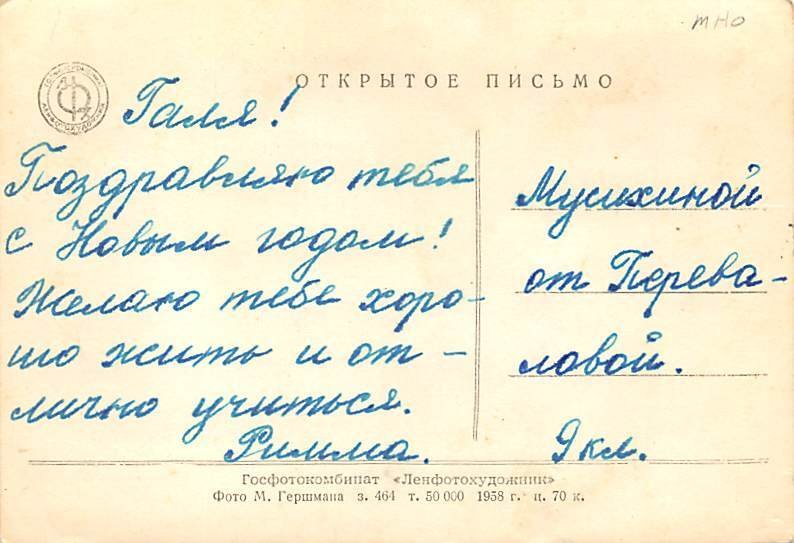 мно
ОТКРЫТОЕ ПИСЬМО
Галя!
Поздравляю тебя
с Новым годом!
Желаю тебе хоро-
шо жить и от-
лично учиться.
Римма.
Мусихиной
от Перева-
ловой.
9 кл.
Госфотокомбинат «Ленфотохудожник»
Фото М. Гершмана з. 464 т. 50 000 1958 г. ц. 70 к.